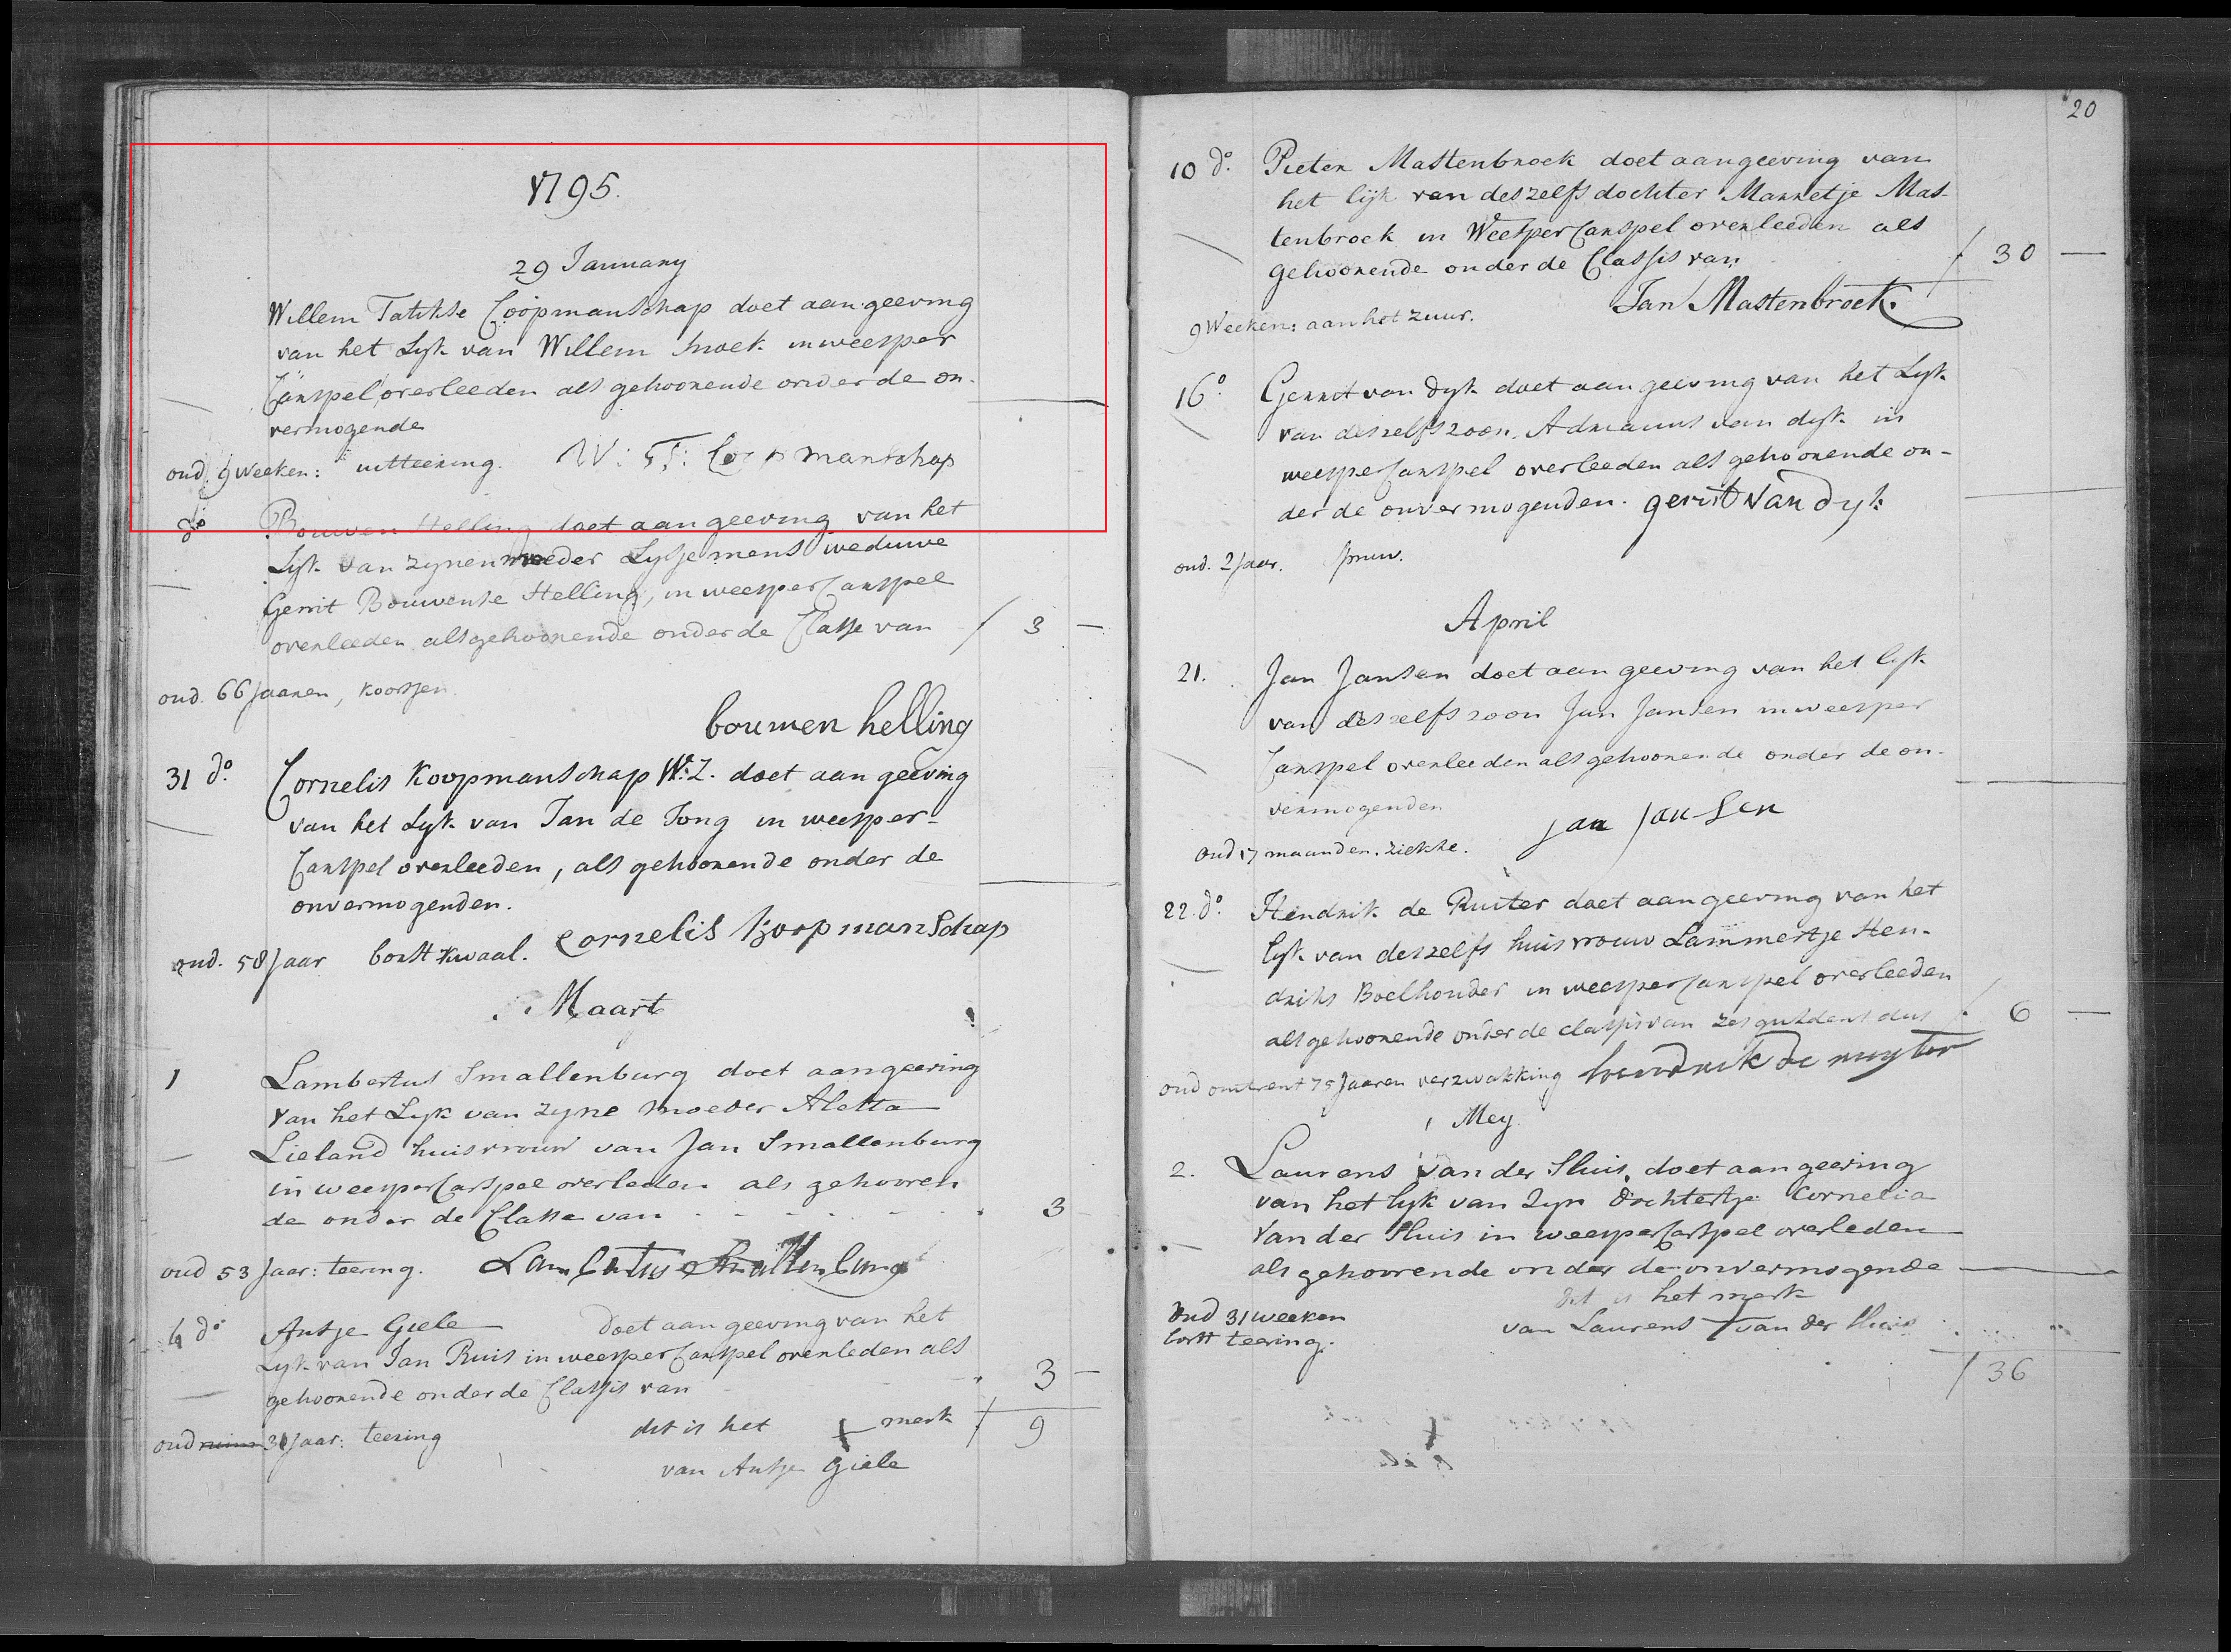 1795.
29 January
Willem Tatikse Coopmanschap doet aangeeving
van het Lyk van Willem Snoek in weesper
Carspel overleeden als gehoorende onder de on-
vermogende
oud. 9 weeken: uitteering. W: T: Coopmanschap
do Bouwen Helling doet aangeeving van het
Lyk van zynen moeder Lysje mens weduwe
Gerrit Bouwense Helling, in weesper Carspel
overleeden als gehoorende onder de Classe van f 3 —
oud. 66 Jaaren, koortsen.
bouwen helling
31 do. Cornelis Koopmanschap W:Z. doet aangeeving
van het Lyk van Jan de Jong in weesper-
Carspel overleeden, als gehoorende onder de
onvermogenden.
oud. 58 Jaar borst kwaal. Cornelis Koopmanschap
Maart
1 Lambertus Smallenburg doet aangeeving
van het Lyk van zyne Moeder Aletta
Lieland huisvrouw van Jan Smallenburg
in weesper Carspel overleden als gehooren
de onder de Classe van - - - - - - 3
oud 53 Jaar: teering. Lambertus Smallenburg
4 do Antje Giele doet aangeeving van het
Lyk van Jan Ruis in weesper Carspel overleden als
gehoorende onder de Classis van - - - 3 —
oud 31 Jaar: teering dit is het + merk f 9
van Antje Giele
20
10 do. Pieter Mastenbroek doet aangeeving van
het lijk van deszelfs dochter Marretje Mas-
tenbroek in Weesper Carspel overleeden als
gehoorende onder de Classis van f 30 —
Jan Mastenbroek.
9 Weeken: aan het zuur.
16o Gerrit van Dyk doet aangeeving van het Lyk
van deszelfs zoon. Adrianus van dyk in
weesper Carspel overleeden als gehoorende on-
der de onvermogenden. gerrit van dyk
oud. 2 Jaar. spruw.
April
21. Jan Jansen doet aangeeving van het lyk
van deszelfs zoon Jan Jansen in weesper
Carspel overleeden als gehoorende onder de on-
vermogenden
jan jansen
oud 17 maanden. ziekte.
22. do. Hendrik de Ruiter doet aangeeving van het
lyk van deszelfs huisvrouw Lammertje Hen-
driks Boelhouder in weesper Carspel overleeden
als gehoorende onder de classis van zes guldens dus f 6 —
oud omtrent 75 Jaaren verzwakking hendrik de ruyter
Mey
2. Laurens van der Sluis, doet aangeeving
van het lyk van Zyn dochtertje Cornelia
van der Sluis in weesper Carspel overleden
als gehoorende onder de onvermogende
dit is het merk
oud 31 weeken van Laurens + van der Sluis
borst teering.
f 36